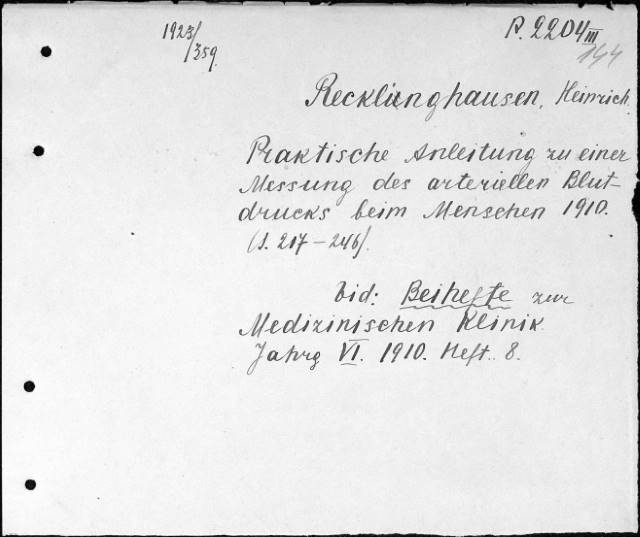 1923/359.
P. 2204 III
144
Recklinghausen, Heinrich.
Praktische Anleitung zu einer
Messung des arteriellen Blut-
drucks beim Menschen 1910.
(S. 217-246).
Vid: Beihefte zur
Medizinischen Klinik.
Jahrg VI. 1910. Heft. 8.